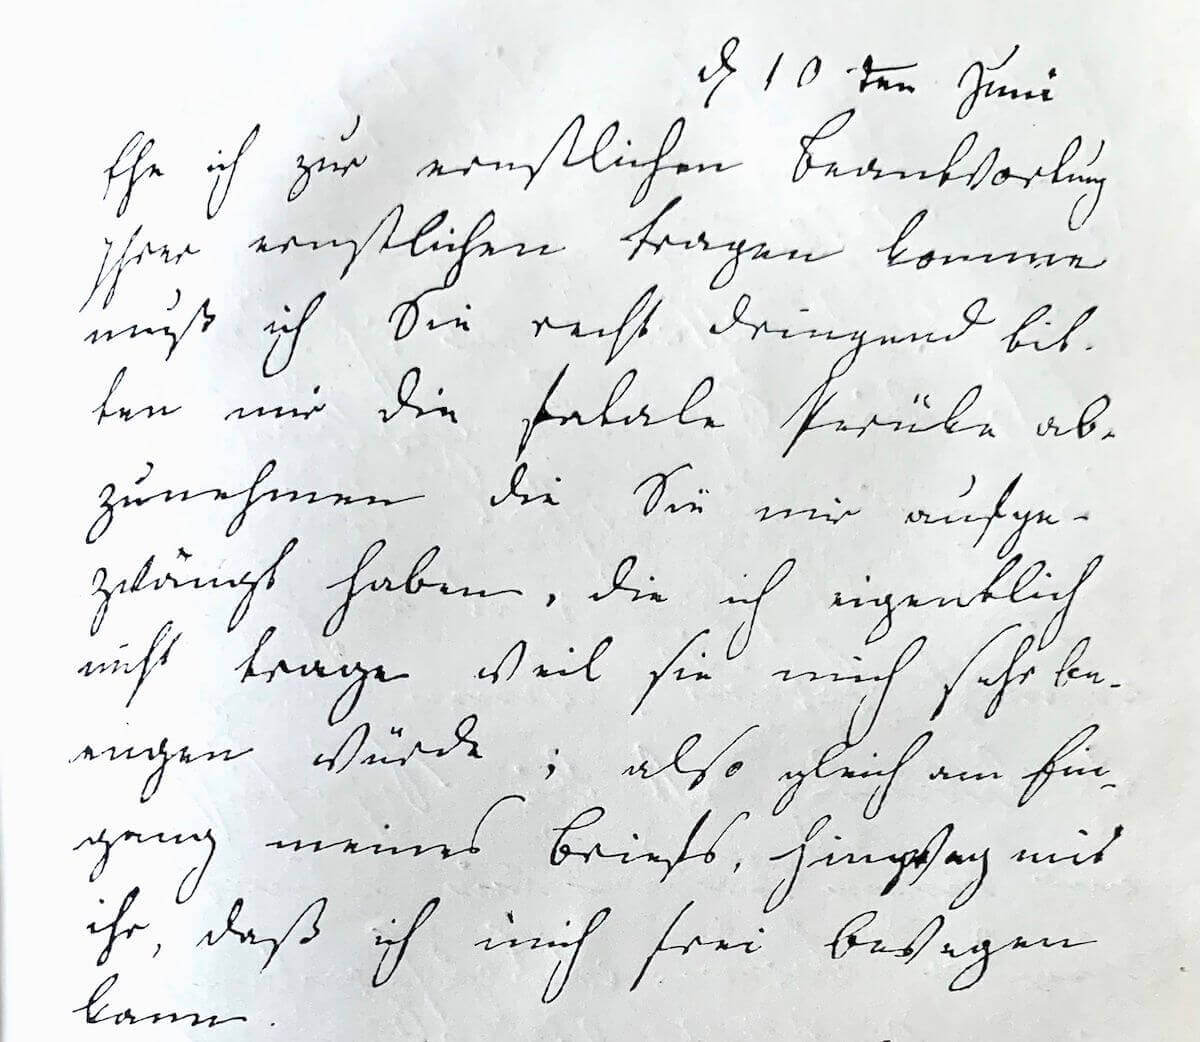 d 10 ten Juni
Ehe ich zur ernstlichen Beantwortung
Ihrer ernstlichen Fragen komme
muß ich Sie recht dringend bit-
ten mir die fatale Perüke ab-
zunehmen die Sie mir aufge-
zwängt haben, die ich eigentlich
nicht trage weil sie mich sehr be-
engen würde; also gleich am Ein-
gang meines Briefs, hinweg mit
ihr, daß ich mich frei bewegen
kann.